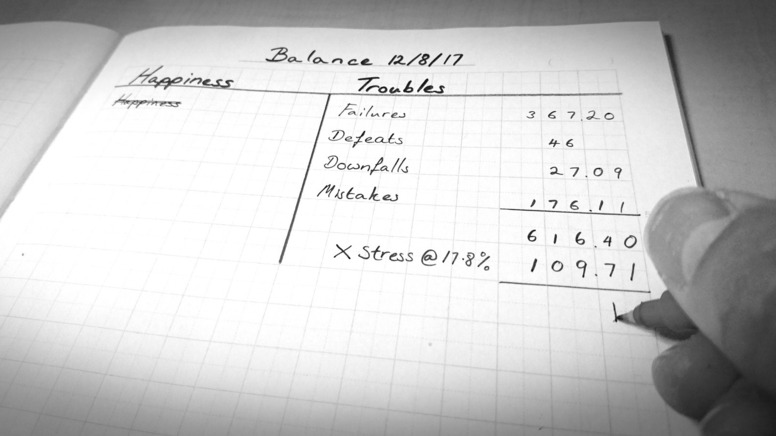 Balance 12/8/17
Happiness Troubles
Happiness
Failures 367.20
Defeats 46
Downfalls 27.09
Mistakes 176.11
616.40
X Stress @ 17.8% 109.71